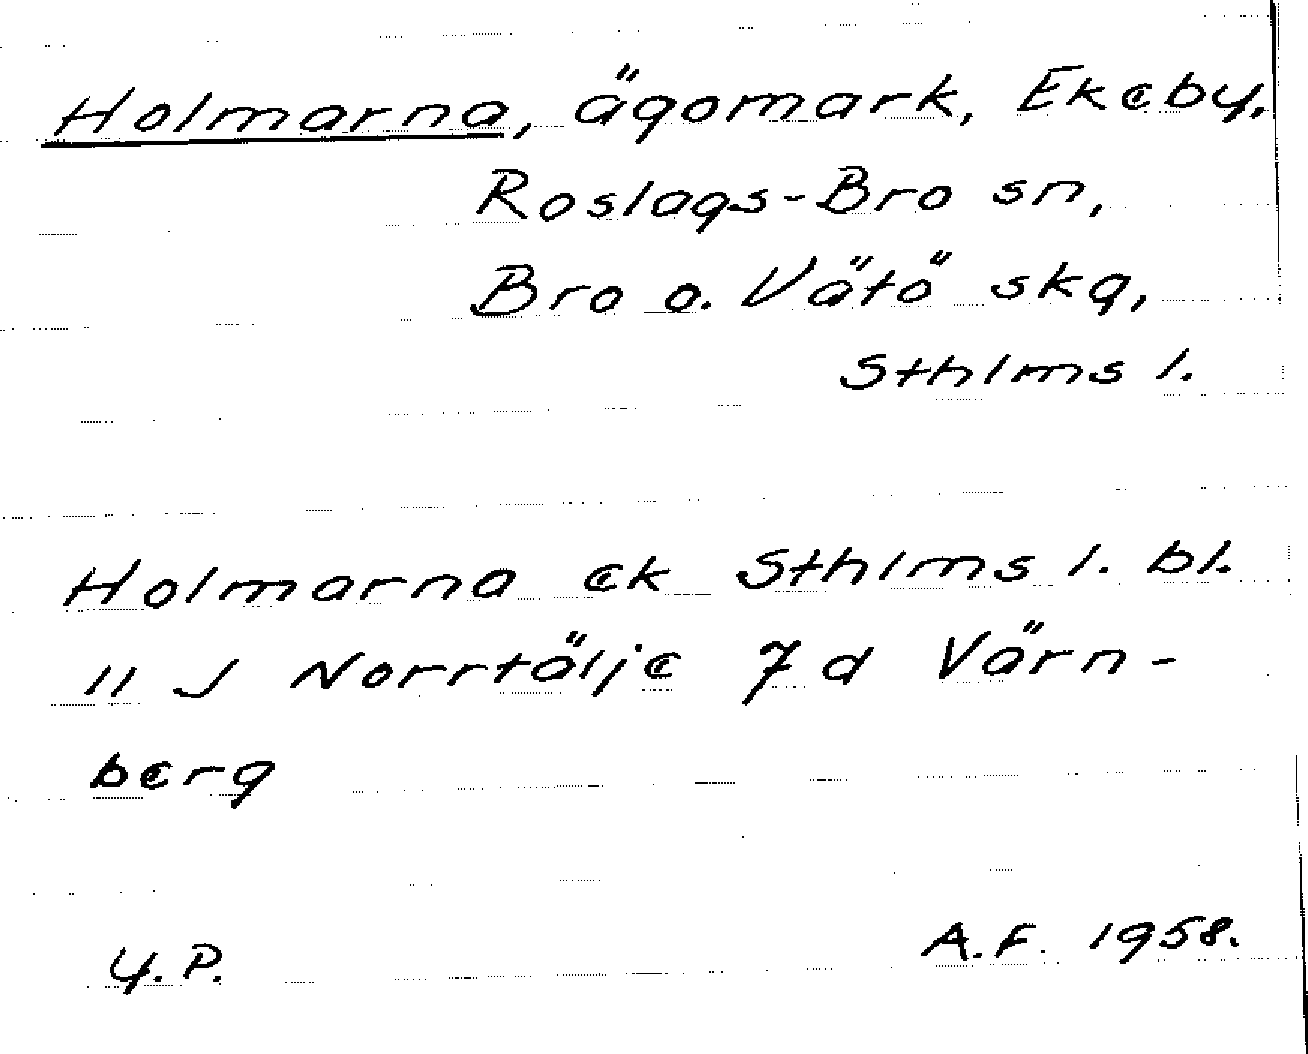 Holmarna, ägomark, Ekeby,
Roslags-Bro sn,
Bro o. Vätö skg,
Sthlms l.
Holmarna ek Sthlms l. bl.
11 J Norrtälje 7 d Värn-
berg
Y.P.
A.F. 1958.